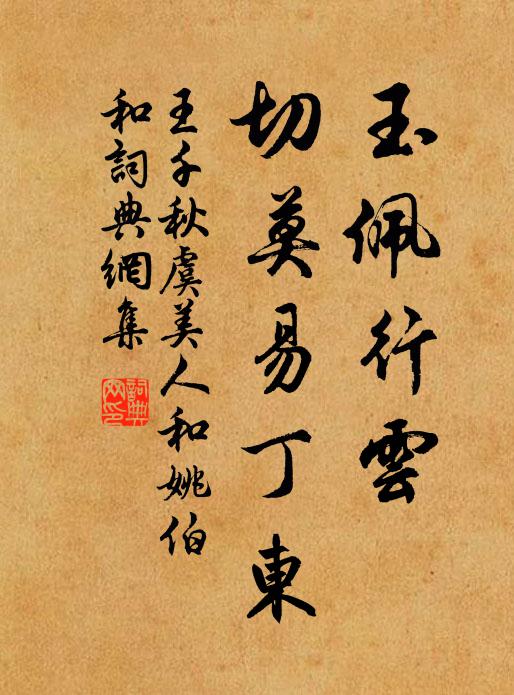 玉佩行雲
切莫易丁東
王千秋虞美人和姚伯
和詞典網集
詞典網印